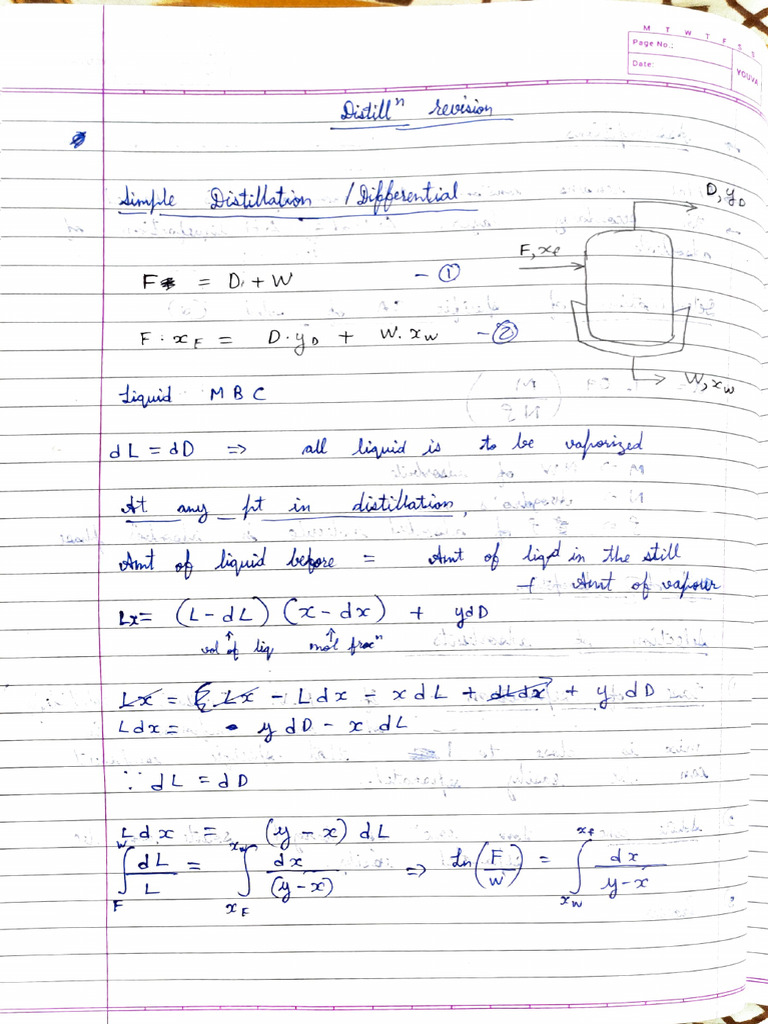 M T W T F S S
Page No.:
Date:
YOUVA
Distillⁿ revision
Simple Distillation / Differential
D, y_D
F, x_F
W, x_W
F = D + W - ①
F · x_F = D · y_D + W · x_W - ②
Liquid M B C
dL = dD ⇒ all liquid is to be vaporized
At any pt in distillation,
Amt of liquid before = Amt of liqd in the still
+ Amt of vapour
Lx = (L - dL) (x - dx) + ydD
↑ ↑
vol of liq mol fracⁿ
Lx = Lx - Ldx - xdL + dLdx + y dD
Ldx = y dD - x dL
∵ dL = dD
Ldx = (y - x) dL
∫_F^W dL/L = ∫_{x_F}^{x_W} dx/(y - x) ⇒ Ln(F/W) = ∫_{x_W}^{x_F} dx/y-x